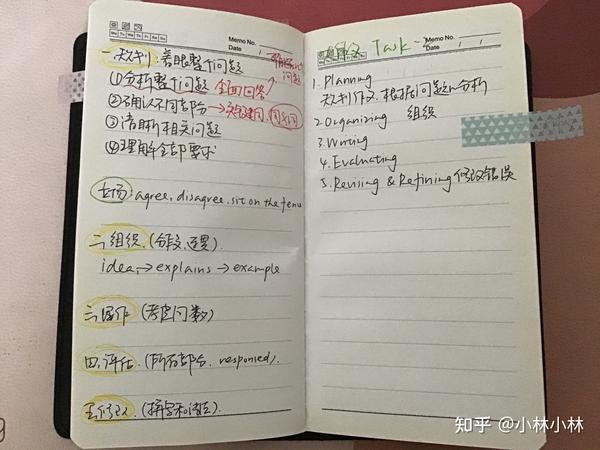 Memo No.
Mo Tu We Th Fr Sa Su
Date / /
一、规划:着眼整个问题
①分析整个问题 全面回答
问题
②确认不同部分→关键词,同义词
③清晰相关问题
④理解全部要求
立场:agree, disagree. sit on the fence
二、组织.(分段、连贯).
idea→explains→example
三、写作(考虑问数)
四、评估.(所有部分、responsed).
五、修改.(拼写和语法).
Memo No.
Mo Tu We Th Fr Sa Su
Date / /
Task 2
1. Planning
规划作文.根据问题分析
2. Organizing 组织
3. Writing
4. Evaluating
5. Revising & Refining 修改错误
知乎 @小林小林